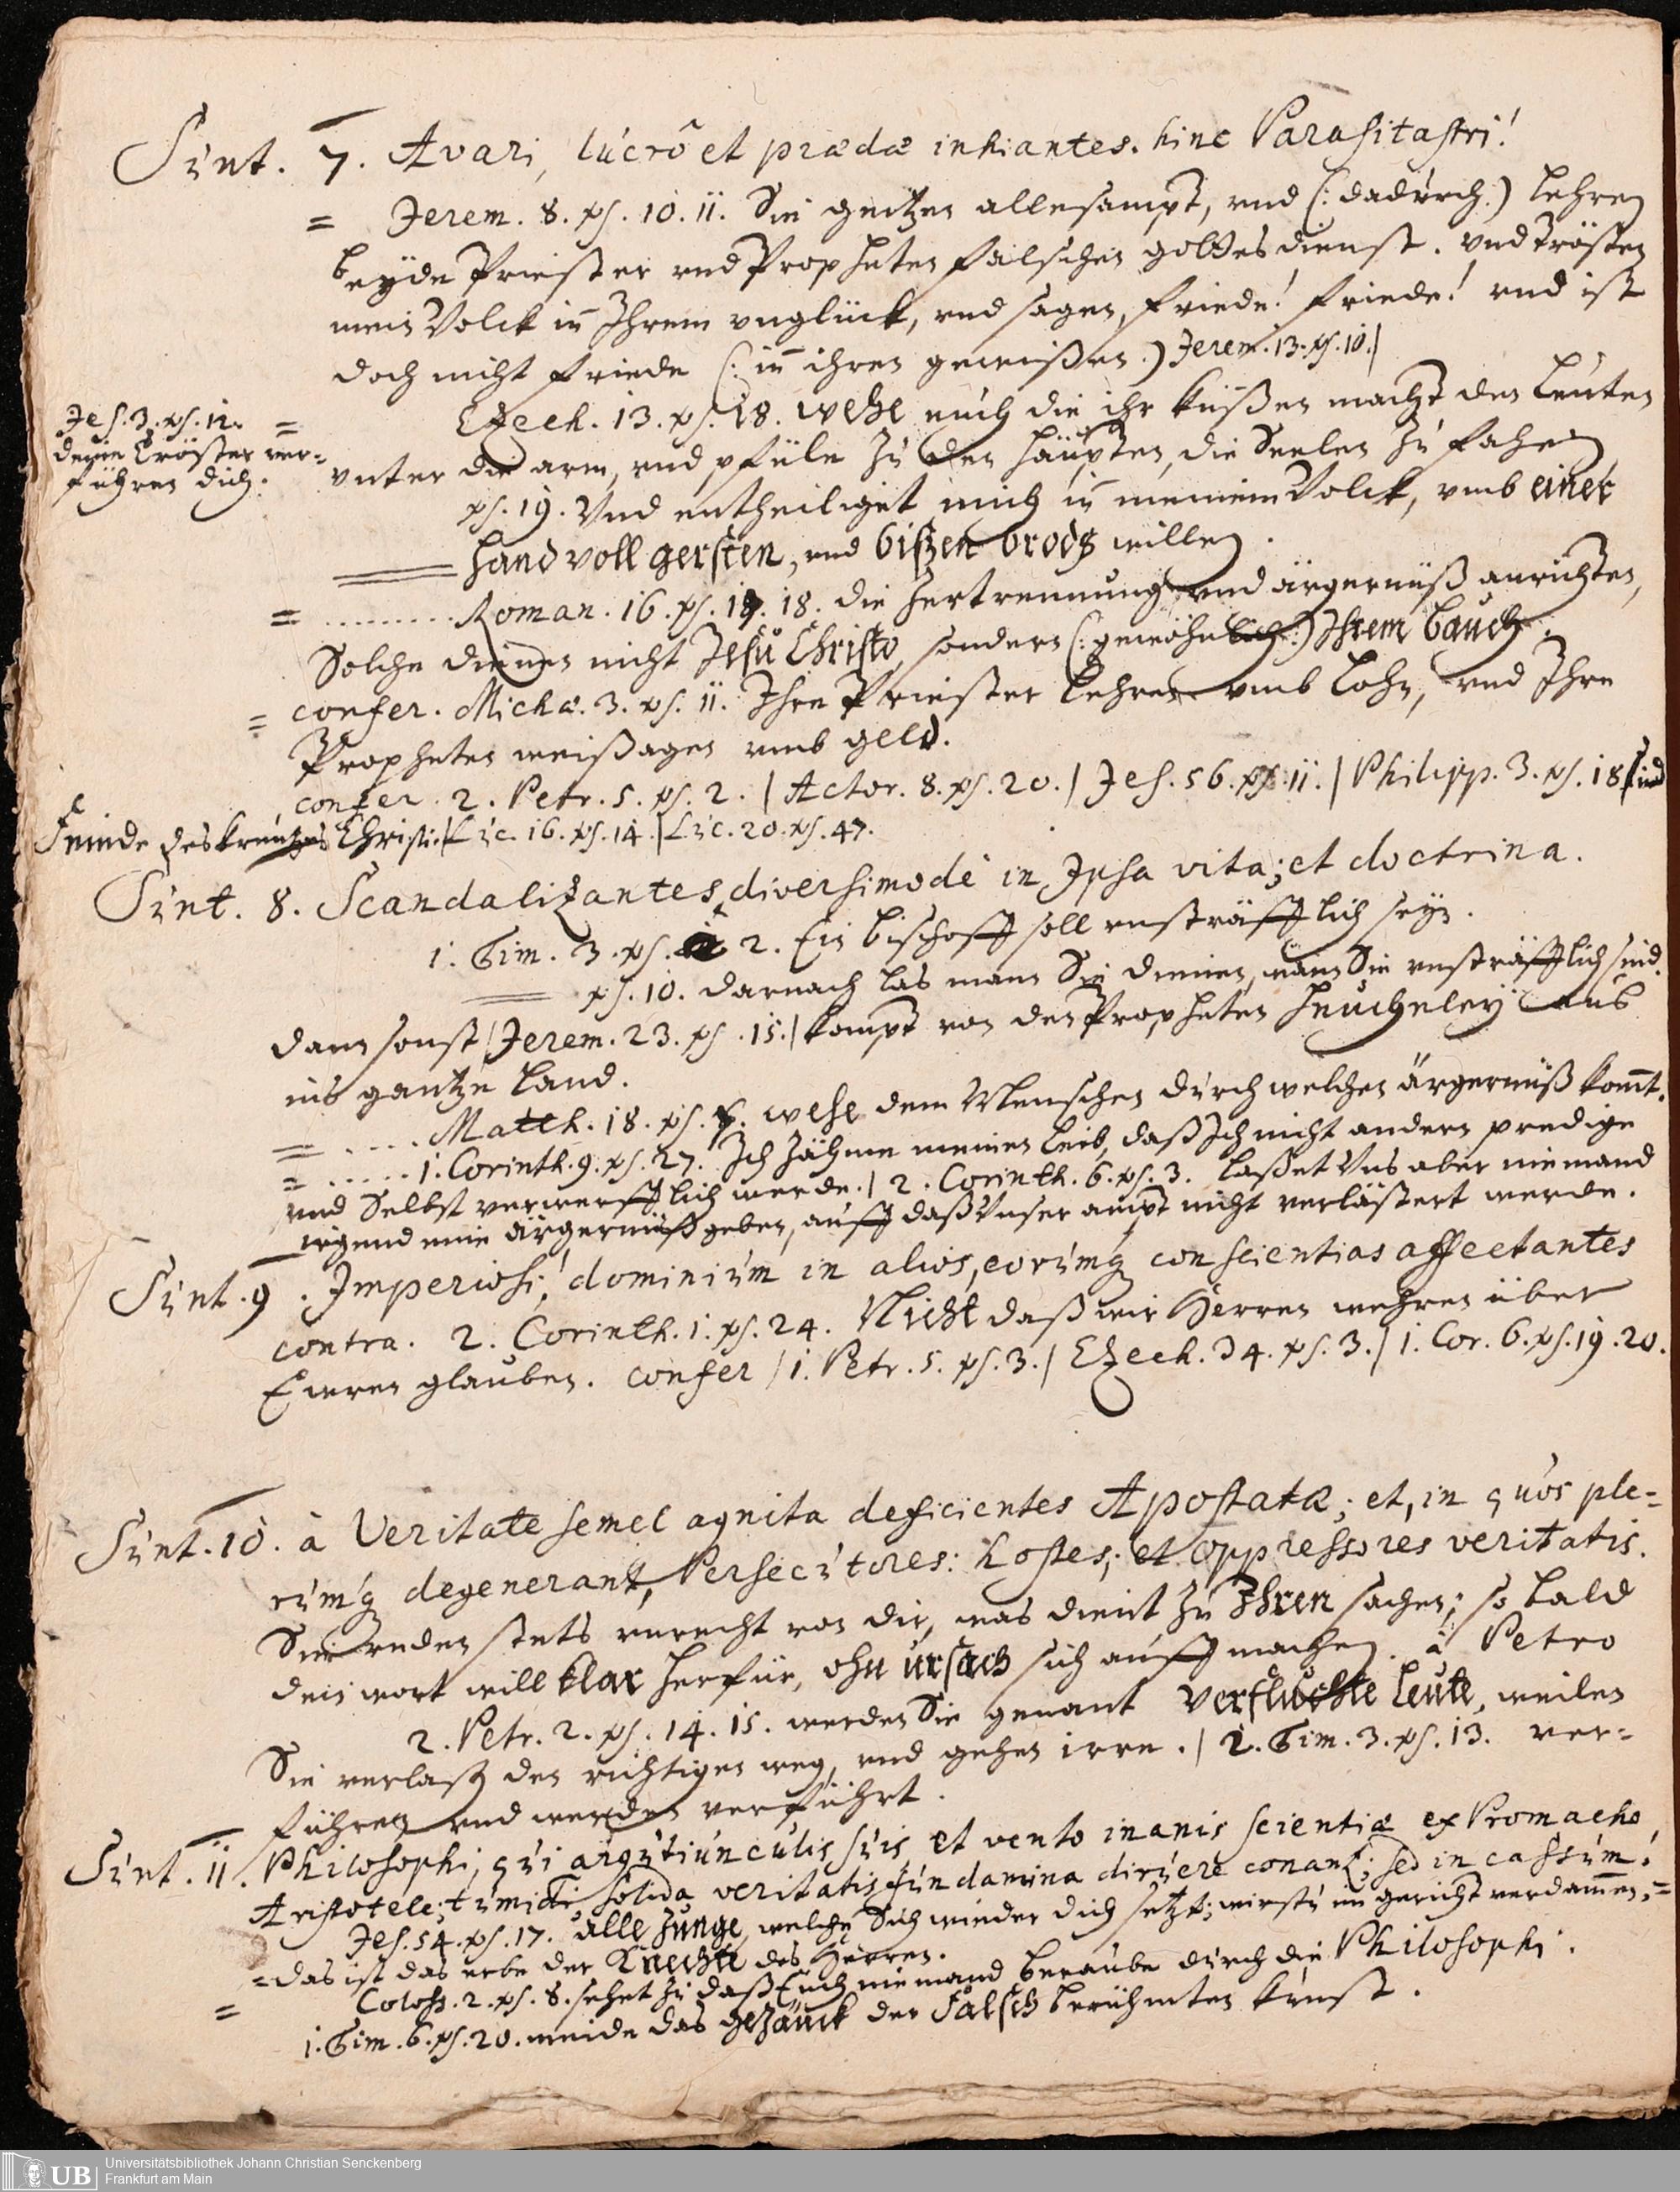 Sunt. 7. Avari, lucro et prædæ inhiantes. hinc Parasitastri!
= Jerem. 8. vs. 10. 11. Sie geitzen allesampt, vnd (: dadurch :) lehren
beyde Priester vnd Propheten falschen gottesdienst. vnd trösten
mein Volck in Ihrem vnglück, vnd sagen, friede! friede! vnd ist
doch nicht friede (: in ihren gewissen :) Jerem. 13. vs. 10. |
Jes. 3. vs. 12.
deine Tröster ver-
führen dich.
= Ezech. 13. vs. 18. wehe euch die ihr küßen macht den Leuten
vnter die arm, vnd pfüle zu den häupten, die Seelen zu fahen
vs. 19. Vnd entheiliget mich in meinem Volck, vmb einer
handvoll gersten, vnd bißen brods willen.
= ......... Roman. 16. vs. 17. 18. die zertrennung vnd ärgernüß anrichten,
Solche dienen nicht Jesu Christo, sondern (: gewöhnlich :) Ihrem bauch.
= confer. Michæ. 3. vs. 11. Ihre Priester lehren vmb lohn, vnd Ihre
Propheten weißagen vmb geld.
confer. 2. Petr. 5. vs. 2. | Actor. 8. vs. 20. | Jes. 56. vs. 11. | Philipp. 3. vs. 18 sind
feinde des kreutzes Christi. | Luc. 16. vs. 14. | Luc. 20. vs. 47.
Sunt. 8. Scandalizantes diversimodè in Ipsa vita; et doctrina.
1. Tim. 3. vs. 2. Ein bischoff soll vnsträfflich seyn.
vs. 10. darnach las mann Sie dienen, wann Sie vnsträfflich sind.
dann sonst | Jerem. 23. vs. 15. | kompt von den Propheten heucheley auß
ins gantze land.
= .... Matth. 18. vs. 7. wehe dem Menschen durch welchen ärgernüß komt.
= ..... 1. Corinth. 9. vs. 27. Ich zähme meinen leib, daß Ich nicht andern predige
vnd Selbst verwerfflich werde. | 2. Corinth. 6. vs. 3. laßet Vns aber niemand
irgend eine ärgernüß geben, auff daß Vnser ampt nicht verlästert werde.
Sunt. 9. Imperiosi; dominium in alios, eorumq conscientias affectantes
contra. 2. Corinth. 1. vs. 24. Nicht daß wir Herren wehren über
Ewren glauben. confer | 1. Petr. 5. vs. 3. | Ezech. 34. vs. 3. | 1. Cor. 6. vs. 19. 20.
Sunt. 10. à Veritate semel agnita deficientes Apostatæ; et, in quos ple-
rumq degenerant, Persecutores: hostes; et oppressores veritatis.
Sie reden stets vnrecht von dir, was dient zu Ihren sachen; so bald
dein wort will klar herfür, ohn ursach sich auffmachen. à Petro
2. Petr. 2. vs. 14. 15. werden Sie genant Verfluchte leute, weilen
Sie verlaßen den richtigen weg, vnd gehen irre. | 2. Tim. 3. vs. 13. ver-
führen vnd werden verführt.
Sunt. 11. Philosophi, qui argutiunculis suis et vento inanis scientiæ ex Promacho
Aristotele; tumidi, solida veritatis fundamina diruere conant; sed in cassum!
Jes. 54. vs. 17. alle Zunge, welche Sich wieder dich setzt; wirstu im gericht verdammen. =
= das ist das erbe der Knechte des Herren.
= Coloss. 2. vs. 8. sehet zu daß Euch niemand beraube durch die Philosophi.
1. Tim. 6. vs. 20. meide das gezänck der falsch berühmten kunst.
UB Universitätsbibliothek Johann Christian Senckenberg
Frankfurt am Main